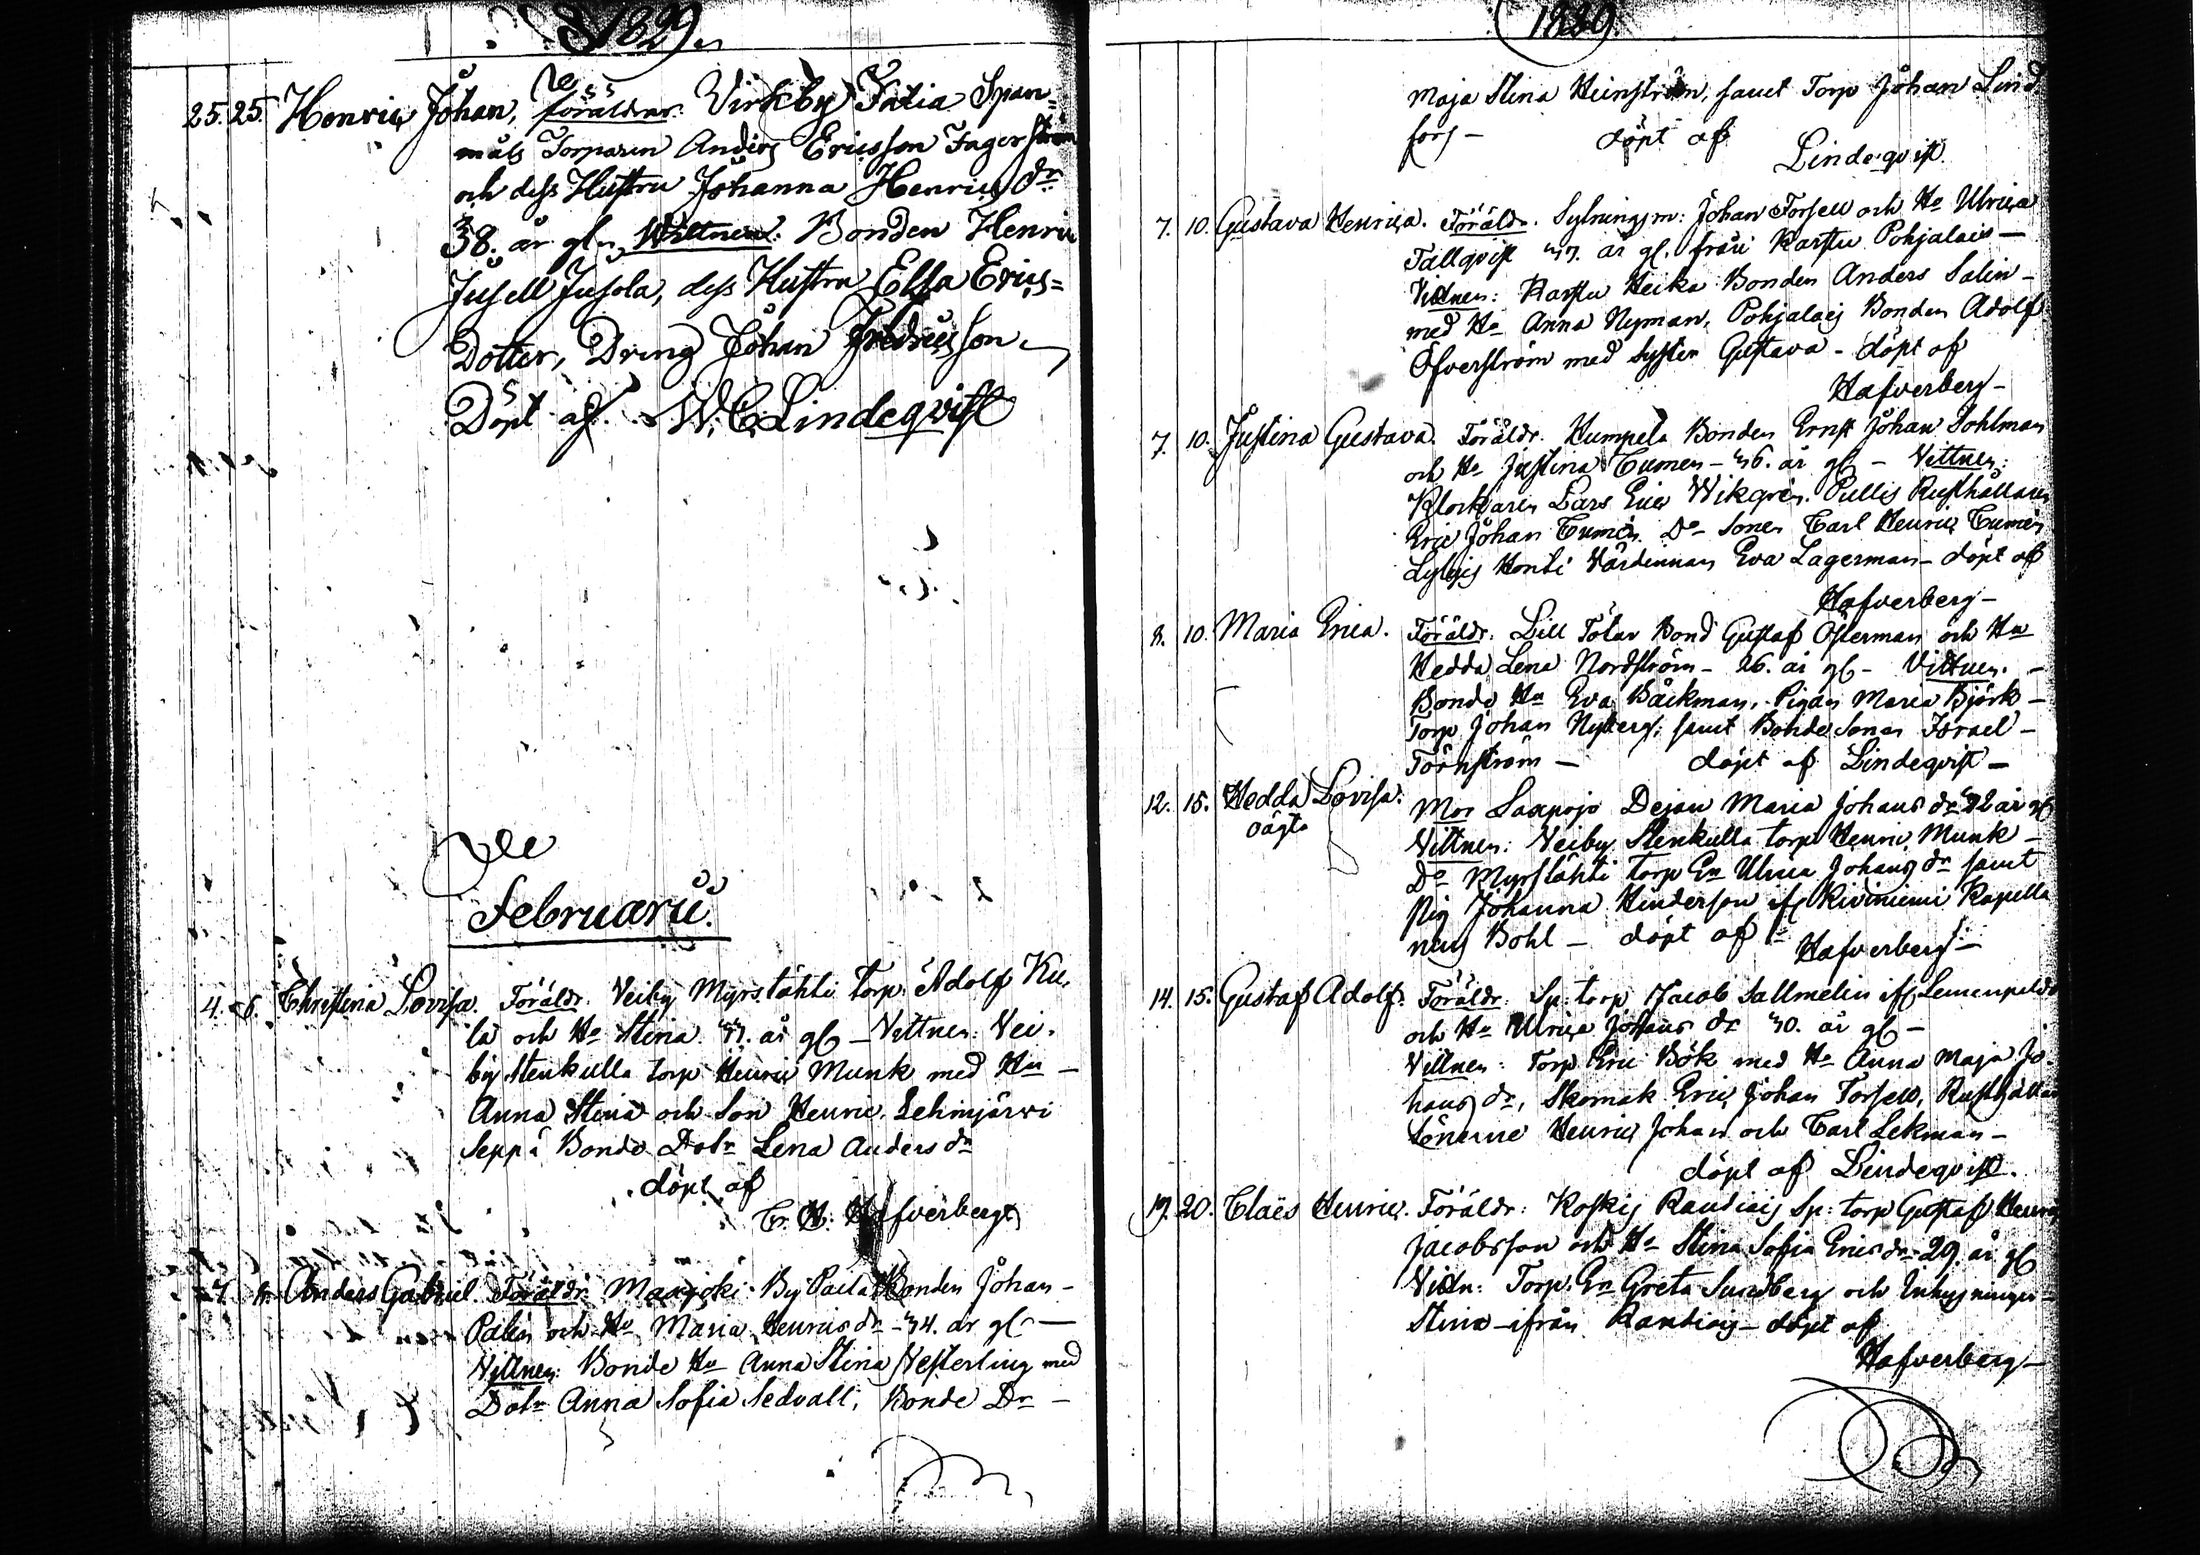 1829.
25. 25. Henric Johan, föräldrar: Virkby Tatia Span=
måls Torparen Anders Ericsson Fagerström
och dess Hustru Johanna Henrics dr
38. år gl. Wittnen: Bonden Henric
Jusell Jusola, dess Hustru Elsa Erics=
Dotter, Dreng Johan Fredricsson
Döpt af W. C. Lindeqvist
Februarii.
4. 6. Christina Lovisa. Föräldr: Veiby Myrstähti torp: Adolf Ku,
la och Ho Stina år gl – Vittnen: Vei,
by Stenkulla torp Henric Munk med Hu –
Anna Stina och Son Henric. Lehmjärvi
Seppä Bonde Dotr Lena Anders dr
döpt af
C. H. Hafverberg
Anders Gabriel. Föräldr: Maxjoki By Bonden Johan –
Palin och Ho Maria Henrics dr – 34. år gl –
Vittnen: Bonde Hu Anna Stina Vesterling med
Dotr Anna Sofia Sedvall, Bonde Dr –
1829.
Maja Stina Heinström, samt Torp Johan Lind
fors – döpt af
Lindeqvist
7. 10. Gustava Henrica. Föräldr. Johan Forsell och Ho Ulrica
Tallqvist år gl. från Karstu Pohjalais –
Vittnen: Karstu Heika Bonden Anders Salin –
med Ho Anna Nyman, Pohjalais Bonden Adolf
Öfverström med Syster Gustava – döpt af
Hafverberg –
7. 10. Justina Gustava. Föräldr. Humpela Bonden Ernst Johan Sohlman
och Ho Justina Cumen – 36. år gl – Vittnen:
Klockaren Lars Eric Wikgren. Pullis Rusthållaren
Eric Johan Cumen. Do Sonen Carl Henric Cumen
Lylyis Honti Värdinnan Eva Lagerman – döpt af
Hafverberg –
8. 10. Maria Erica. Föräldr: Lill Tötar Bond Gustaf Österman och Hu
Hedda Lena Nordström – 26. år gl – Vittnen. –
Bonde Hu Eva Bäckman, Pigan Maria Björk –
Torp Johan Nyberg: samt Bonde Sonen Israel –
Törnström – döpt af Lindeqvist –
12. 15. Hedda Lovisa. Mor Laxpojo Dejan Maria Johans dr 32 år gl
oägta Vittnen: Veiby Stenkulla torp Henric Munk –
Do Myrstähti torp En Ulrica Johans dr samt
pig Johanna Hinderson if Kiviniemi Kapella
nens Bohl – döpt af
Hafverberg –
14. 15. Gustaf Adolf. Föräldr: Sp: torp Jacob Sallmelin if
och Hu Ulrica Johans dr 30. år gl –
Vittnen: Torp Eric Bök med Ho Anna Maja Jo,
hans dr, Skomak Eric Johan Forsell, Rusthållar
Sönerne Henric Johan och Carl Lekman –
döpt af Lindeqvist.
19. 20. Claës Henric. Föräldr: Koskis Raudiais Sp: torp Gustaf Henric
Jacobsson och Ho Stina Sofia Erics dr 29. år gl
Vittn: Torp. En Greta Sundberg och
Stina – ifrån Randiais – döpt af
Hafverberg –